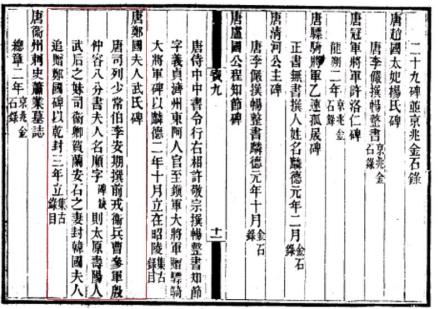 二十九碑並京兆金石錄
唐趙國太妃楊氏碑
唐李儼撰暢整書京兆金石錄
唐冠軍將軍許洛仁碑
龍朔二年京兆金石錄
唐驃騎將軍乙速孤晟碑
正書無書撰人姓名麟德元年二月金石錄
唐清河公主碑
唐李儼撰暢整書麟德元年十月金石錄
唐盧國公程知節碑
碑九
十一
唐侍中中書令行右相許敬宗撰暢整書知節
字義貞濟州東阿人官至鎮軍大將軍贈驃騎
大將軍碑以麟德二年十月立在昭陵集古錄目
唐鄭國夫人武氏碑
唐司列少常伯李安期撰前戎衛兵曹參軍殷
仲容八分書夫人名順字碑缺則太原壽陽人
武后之妹司衛卿賀蘭安石之妻封韓國夫人
追贈鄭國碑以乾封三年立集古錄目
唐衞州刺史蕭業墓誌
總章二年京兆金石錄